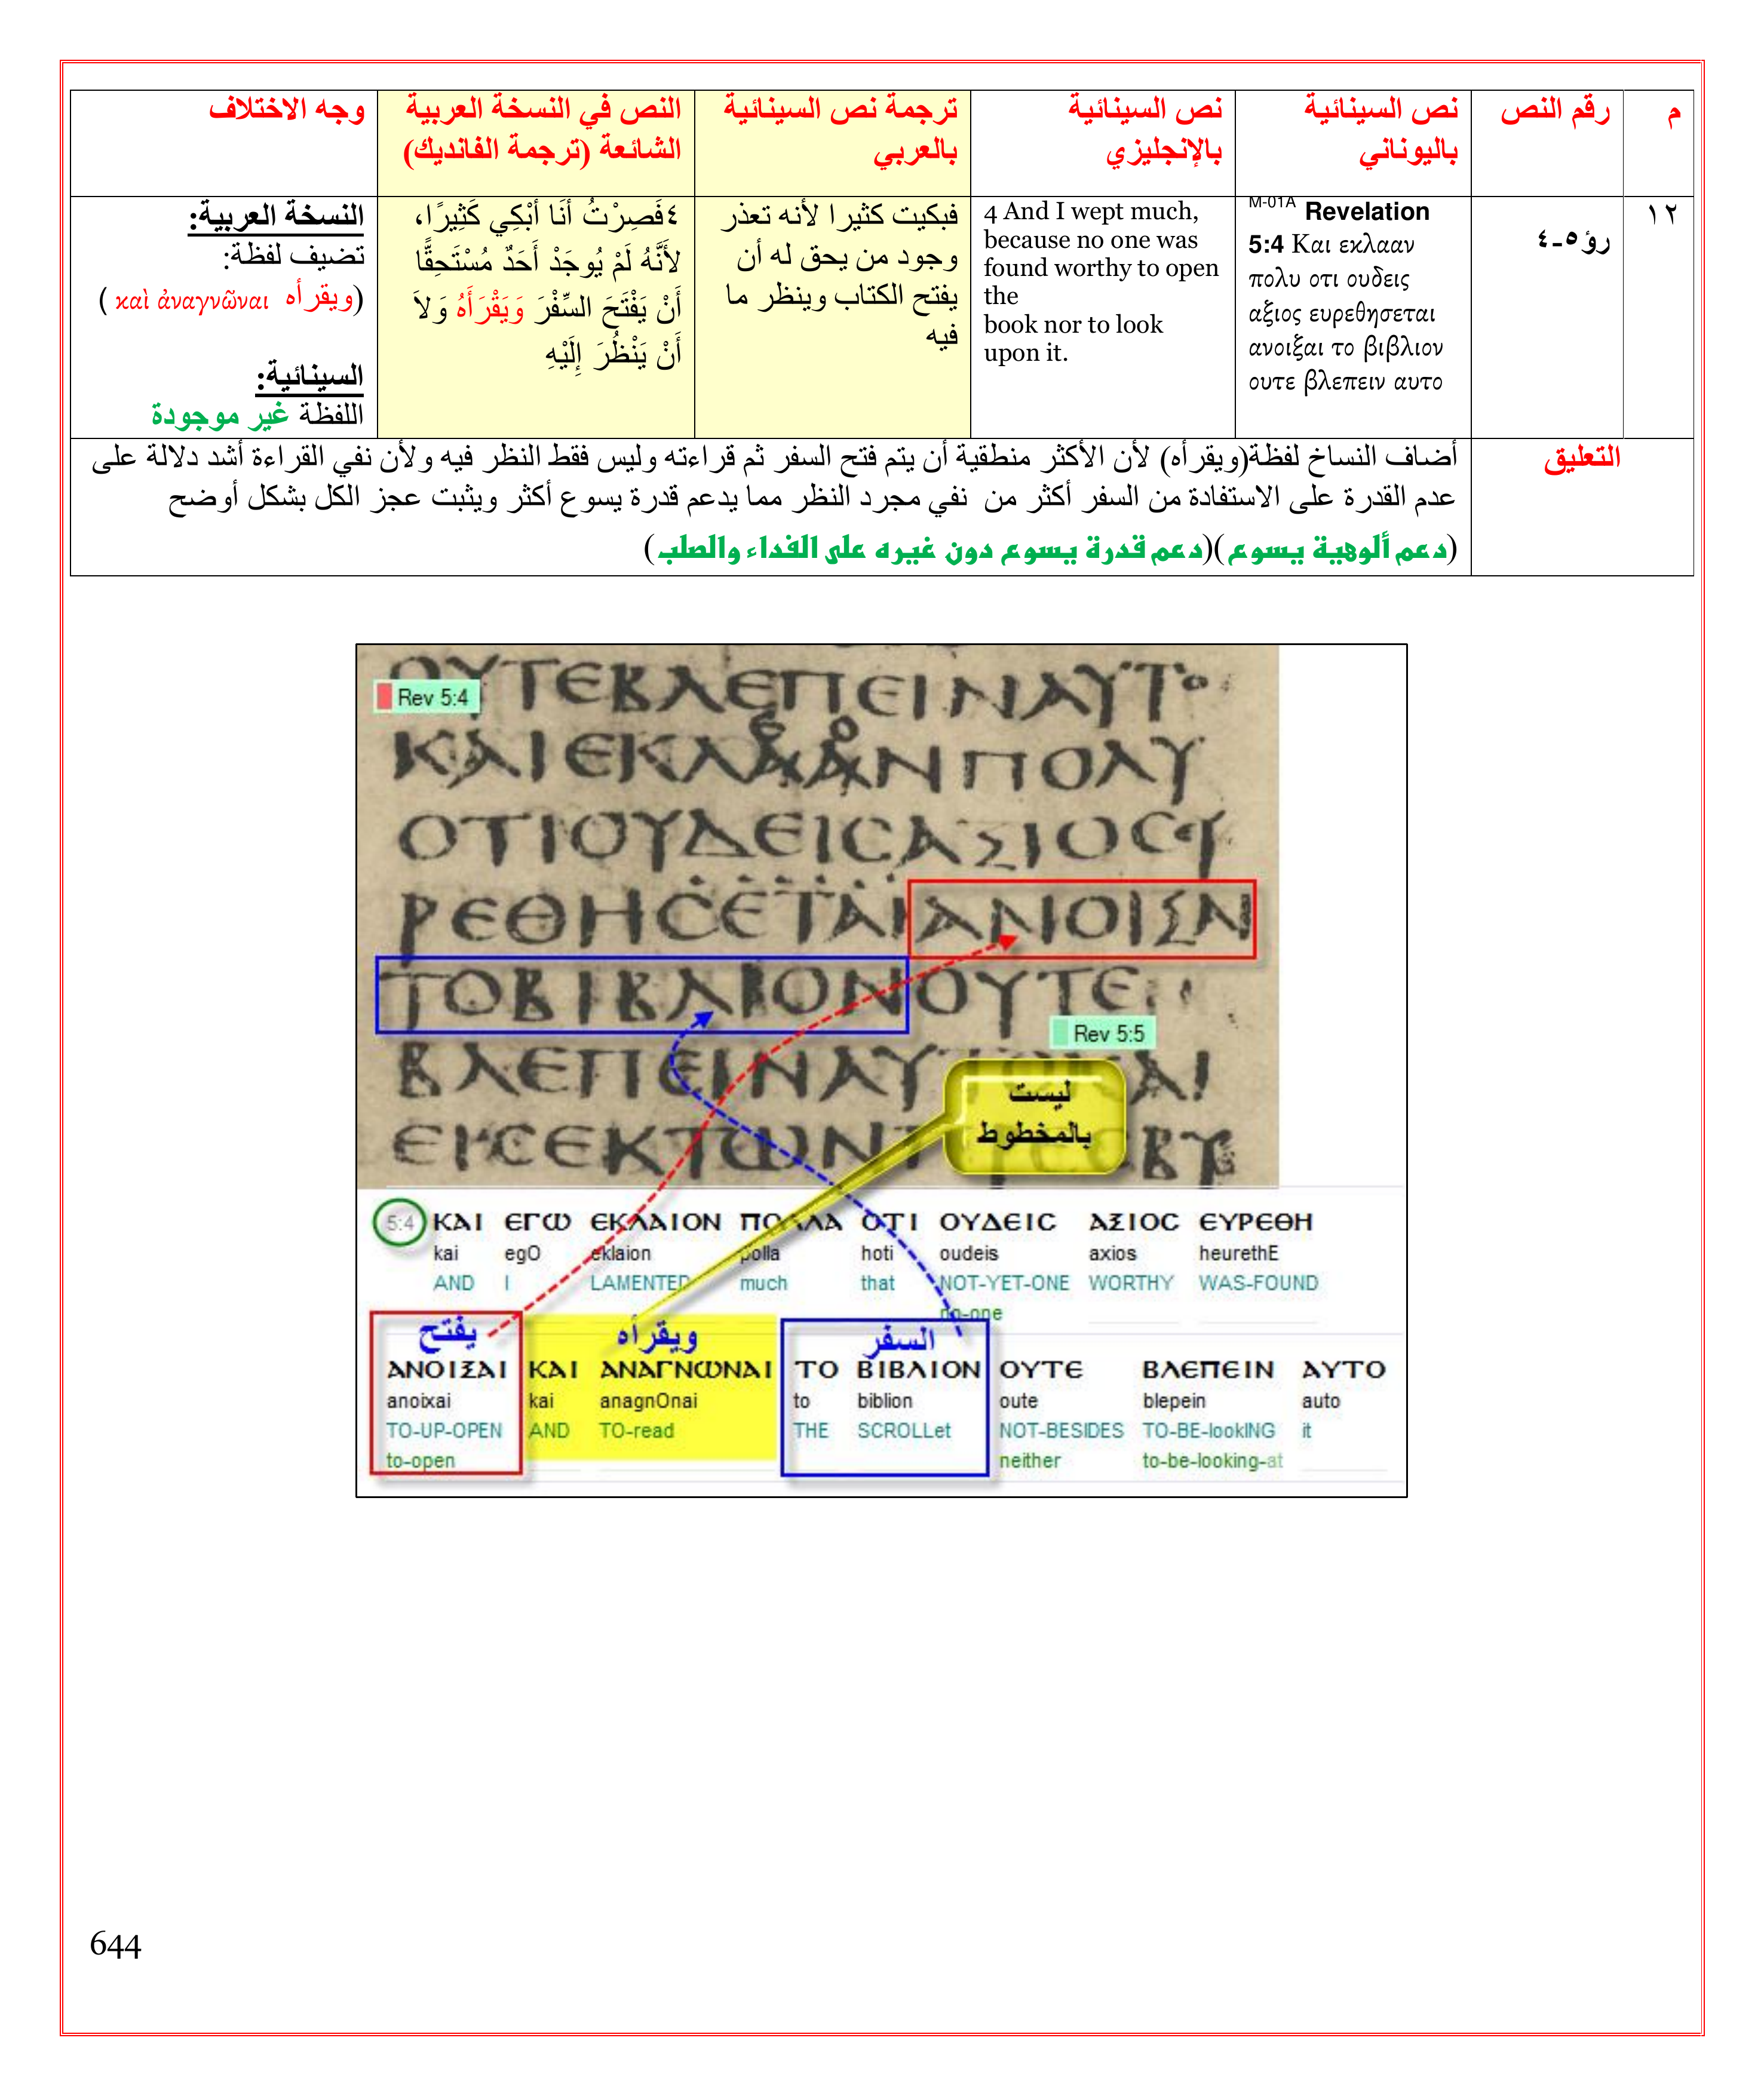 م
رقم النص
نص السينائية
باليوناني
نص السينائية
بالإنجليزي
ترجمة نص السينائية
بالعربي
النص في النسخة العربية
الشائعة (ترجمة الفانديك)
وجه الاختلاف
١٢
رؤ٥-٤
M-01A Revelation
5:4 Και εκλααν
πολυ οτι ουδεις
αξιος ευρεθησεται
ανοιξαι το βιβλιον
ουτε βλεπειν αυτο
4 And I wept much,
because no one was
found worthy to open
the
book nor to look
upon it.
فبكيت كثيرا لأنه تعذر
وجود من يحق له أن
يفتح الكتاب وينظر ما
فيه
٤فَصِرْتُ أَنَا أَبْكِي كَثِيرًا،
لأَنَّهُ لَمْ يُوجَدْ أَحَدٌ مُسْتَحِقًّا
أَنْ يَفْتَحَ السِّفْرَ وَيَقْرَأَهُ وَلاَ
أَنْ يَنْظُرَ إِلَيْهِ
النسخة العربية:
تضيف لفظة:
(ويقرأه καὶ ἀναγνῶναι )
السينائية:
اللفظة غير موجودة
التعليق
أضاف النساخ لفظة(ويقرأه) لأن الأكثر منطقية أن يتم فتح السفر ثم قراءته وليس فقط النظر فيه ولأن نفي القراءة أشد دلالة على
عدم القدرة على الاستفادة من السفر أكثر من نفي مجرد النظر مما يدعم قدرة يسوع أكثر ويثبت عجز الكل بشكل أوضح
(دعم ألوهية يسوع)(دعم قدرة يسوع دون غيره على الفداء والصلب)
ΟΥΤΕΒΛΕΠΕΙΝΑΥΤΟ
Rev 5:4
ΚΑΙΕΚΛΑΑΝΠΟΛΥ
ΟΤΙΟΥΔΕΙCΑΞΙΟCΕΥ
ΡΕΘΗCΕΤΑΙΑΝΟΙΞΑΙ
ΤΟΒΙΒΛΙΟΝΟΥΤΕ
Rev 5:5
ΒΛΕΠΕΙΝΑΥΤΟΚΑΙ
ليست
بالمخطوط
5:4 ΚΑΙ ΕΓΩ ΕΚΛΑΙΟΝ ΠΟΛΛΑ ΟΤΙ ΟΥΔΕΙC ΑΞΙΟC ΕΥΡΕΘΗ
kai egO eklaion polla hoti oudeis axios heurethE
AND I LAMENTED much that NOT-YET-ONE WORTHY WAS-FOUND
no-one
يفتح ويقرأه السفر
ΑΝΟΙΞΑΙ ΚΑΙ ΑΝΑΓΝΩΝΑΙ ΤΟ ΒΙΒΛΙΟΝ ΟΥΤΕ ΒΛΕΠΕΙΝ ΑΥΤΟ
anoixai kai anagnOnai to biblion oute blepein auto
TO-UP-OPEN AND TO-read THE SCROLLet NOT-BESIDES TO-BE-lookING it
to-open neither to-be-looking-at
644